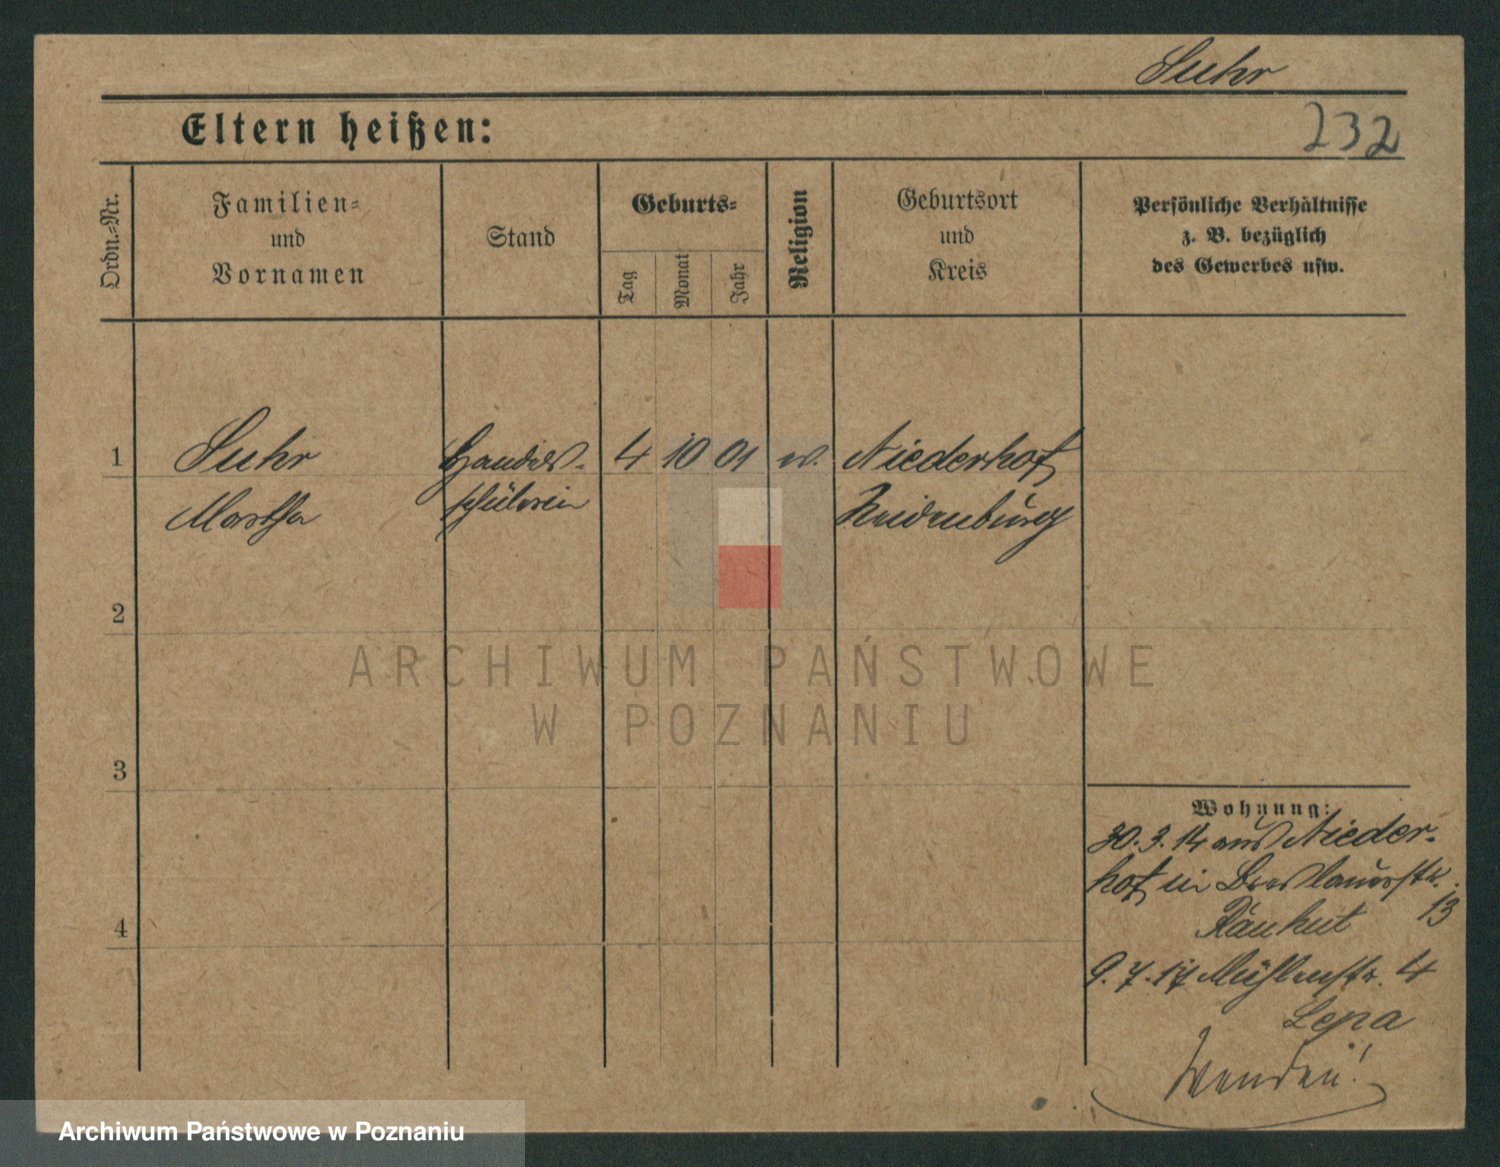 Suhr
Eltern heißen:
232
Ordn.-Nr.
Familien-
und
Vornamen
Stand
Geburts-
Tag
Monat
Jahr
Religion
Geburtsort
und
Kreis
Persönliche Verhältnisse
z. B. bezüglich
des Gewerbes usw.
1
Suhr
Martha
Handels-
schülerin
4
10
01
ev.
Niederhof
Neidenburg
2
ARCHIWUM PAŃSTWOWE
W POZNANIU
3
Wohnung:
30.3.14 aus Nieder-
hof in Breslauerstr.
13
4
9.7.17 Mühlenstr. 4
Lepa
Wenden!
Archiwum Państwowe w Poznaniu